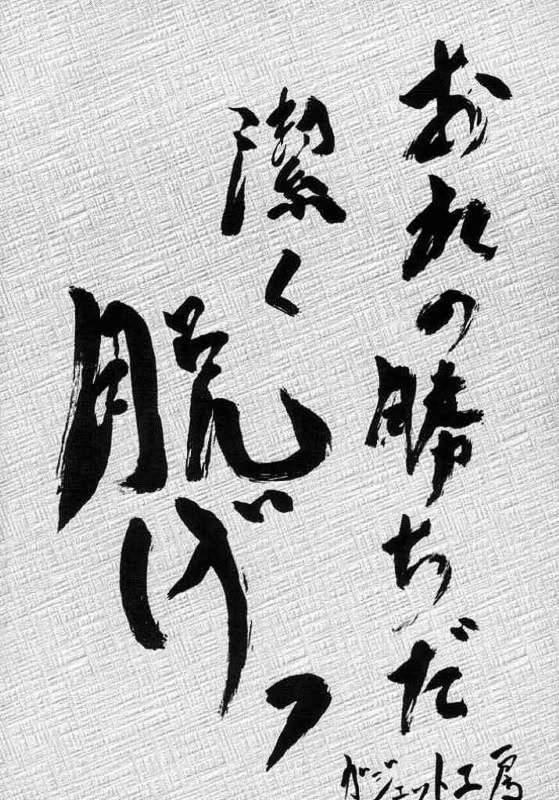 おれの勝ちだ
潔く脱げっ
ガジェット工房